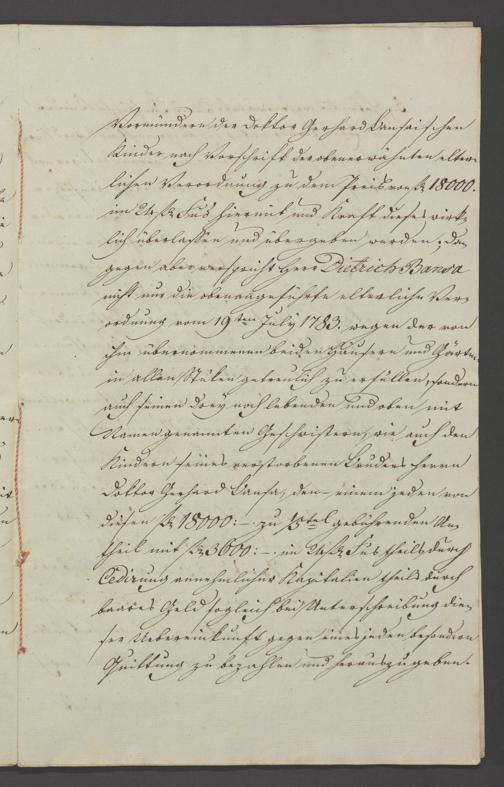 Vormündern der Doktor Gerhard Bansaischen
Kinder nach Vorschrift der obenerwähnten elter-
lichen Verordnung zu dem Preis von fl 18000.
im 24 fl Fus hiermit und Kraft dieses wirk-
lich überlassen und übergeben werden; da-
gegen aber verspricht Herr Dietrich Bansa
nicht nur die obenangeführte elterliche Ver-
ordnung vom 19ten July 1783. wegen der von
ihm übernommenen beiden Häusern und Gärten
in allen Stüken getreulich zu erfüllen, sondern
auch seinen drey noch lebenden und oben mit
Namen genannten Geschwistern, wie auch den
Kindern seines verstorbenen Bruders Herrn
Doktor Gerhard Bansa, den einem jeden von
diesen fl 18000:- zu 1/5tel gebührenden An-
theil mit fl 3600:- im 24 fl Fus theils durch
Cedirung annehmlicher Kapitalien theils durch
baares Geld sogleich bei Unterschreibung die-
ser Uebereinkunft gegen eines jeden besondern
Quittung zu bezahlen und herauszugeben.